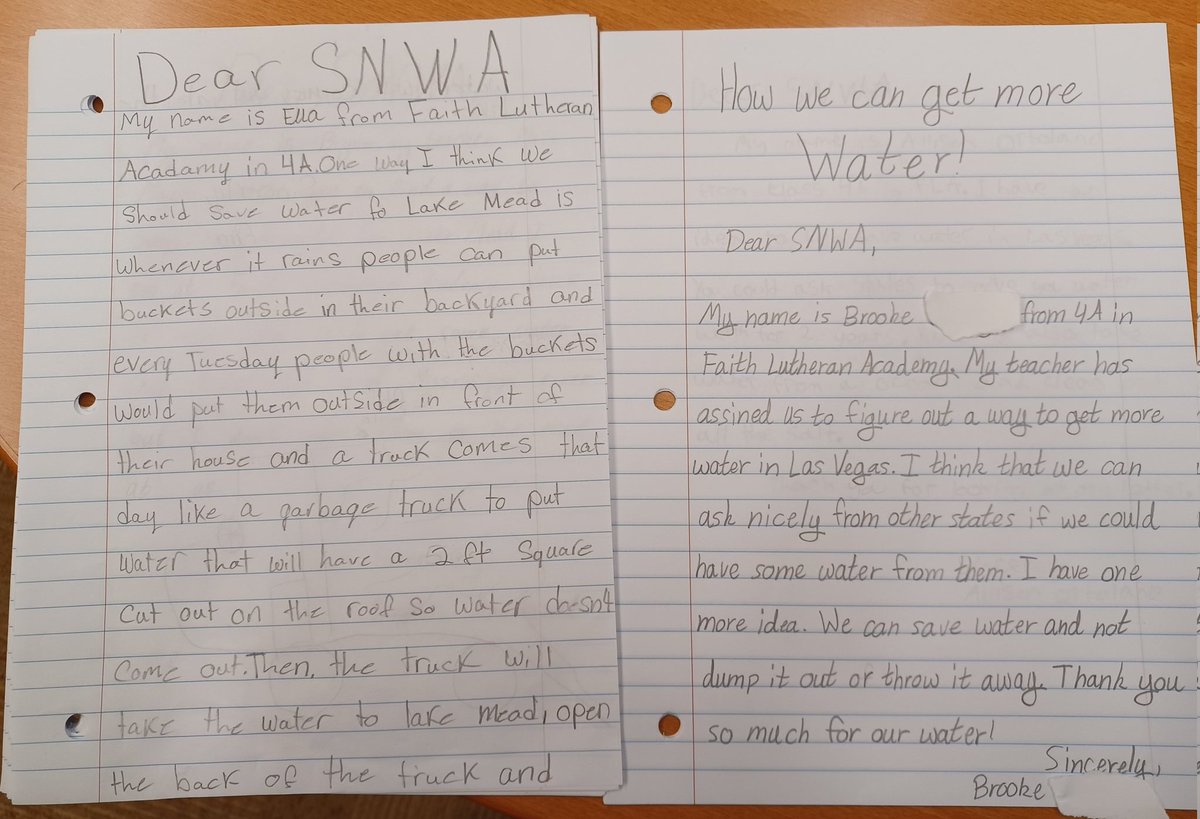 Dear SNWA
My name is Ella from Faith Lutheran
Acadamy in 4A. One way I think we
should save water fo Lake Mead is
whenever it rains people can put
buckets outside in their backyard and
every Tuesday people with the buckets
would put them outside in front of
their house and a truck comes that
day like a garbage truck to put
water that will have a 2 ft square
cut out on the roof so water doesn4
come out. Then, the truck will
take the water to lake Mead, open
the back of the truck and
How we can get more
Water!
Dear SNWA,
My name is Brooke from 4A in
Faith Lutheran Academy. My teacher has
assined us to figure out a way to get more
water in Las Vegas. I think that we can
ask nicely from other states if we could
have some water from them. I have one
more idea. We can save water and not
dump it out or throw it away. Thank you
so much for our water!
Sincerely,
Brooke